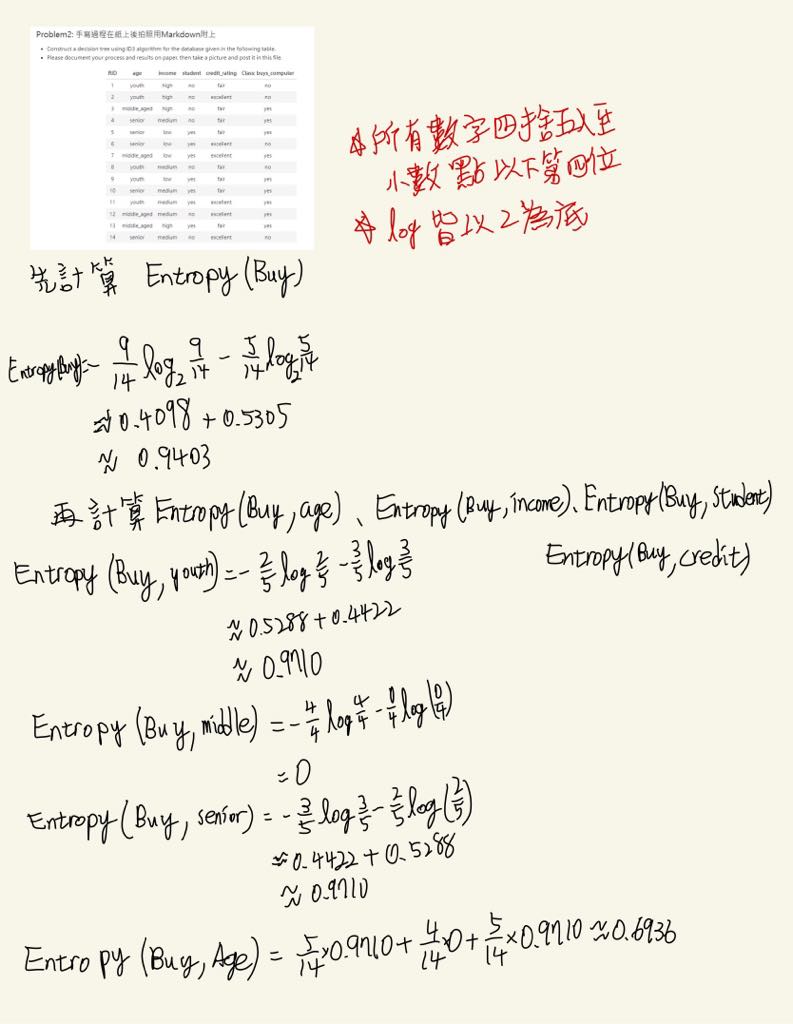 Problem2: 手寫過程在紙上後拍照用Markdown附上
• Construct a decision tree using ID3 algorithm for the database given in the following table.
• Please document your process and results on paper, then take a picture and post it in this file
RID age income student credit_rating Class: buys_computer
1 youth high no fair no
2 youth high no excellent no
3 middle_aged high no fair yes
4 senior medium no fair yes
5 senior low yes fair yes
6 senior low yes excellent no
7 middle_aged low yes excellent yes
8 youth medium no fair no
9 youth low yes fair yes
10 senior medium yes fair yes
11 youth medium yes excellent yes
12 middle_aged medium no excellent yes
13 middle_aged high yes fair yes
14 senior medium no excellent no
☆所有數字四捨五入至
小數點以下第四位
☆ log 皆以2為底
先計算 Entropy (Buy)
Entropy(Buy)= - 9/14 log₂ 9/14 - 5/14 log₂ 5/14
≈ 0.4098 + 0.5305
≈ 0.9403
再計算 Entropy (Buy, age)、Entropy (Buy, income)、Entropy (Buy, student)
Entropy (Buy, credit)
Entropy (Buy, youth) = - 2/5 log 2/5 - 3/5 log 3/5
≈ 0.5288 + 0.4422
≈ 0.9710
Entropy (Buy, middle) = - 4/4 log 4/4 - 0/4 log (0/4)
= 0
Entropy (Buy, senior) = - 3/5 log 3/5 - 2/5 log (2/5)
≈ 0.4422 + 0.5288
≈ 0.9710
Entropy (Buy, Age) = 5/14 × 0.9710 + 4/14 × 0 + 5/14 × 0.9710 ≈ 0.6936